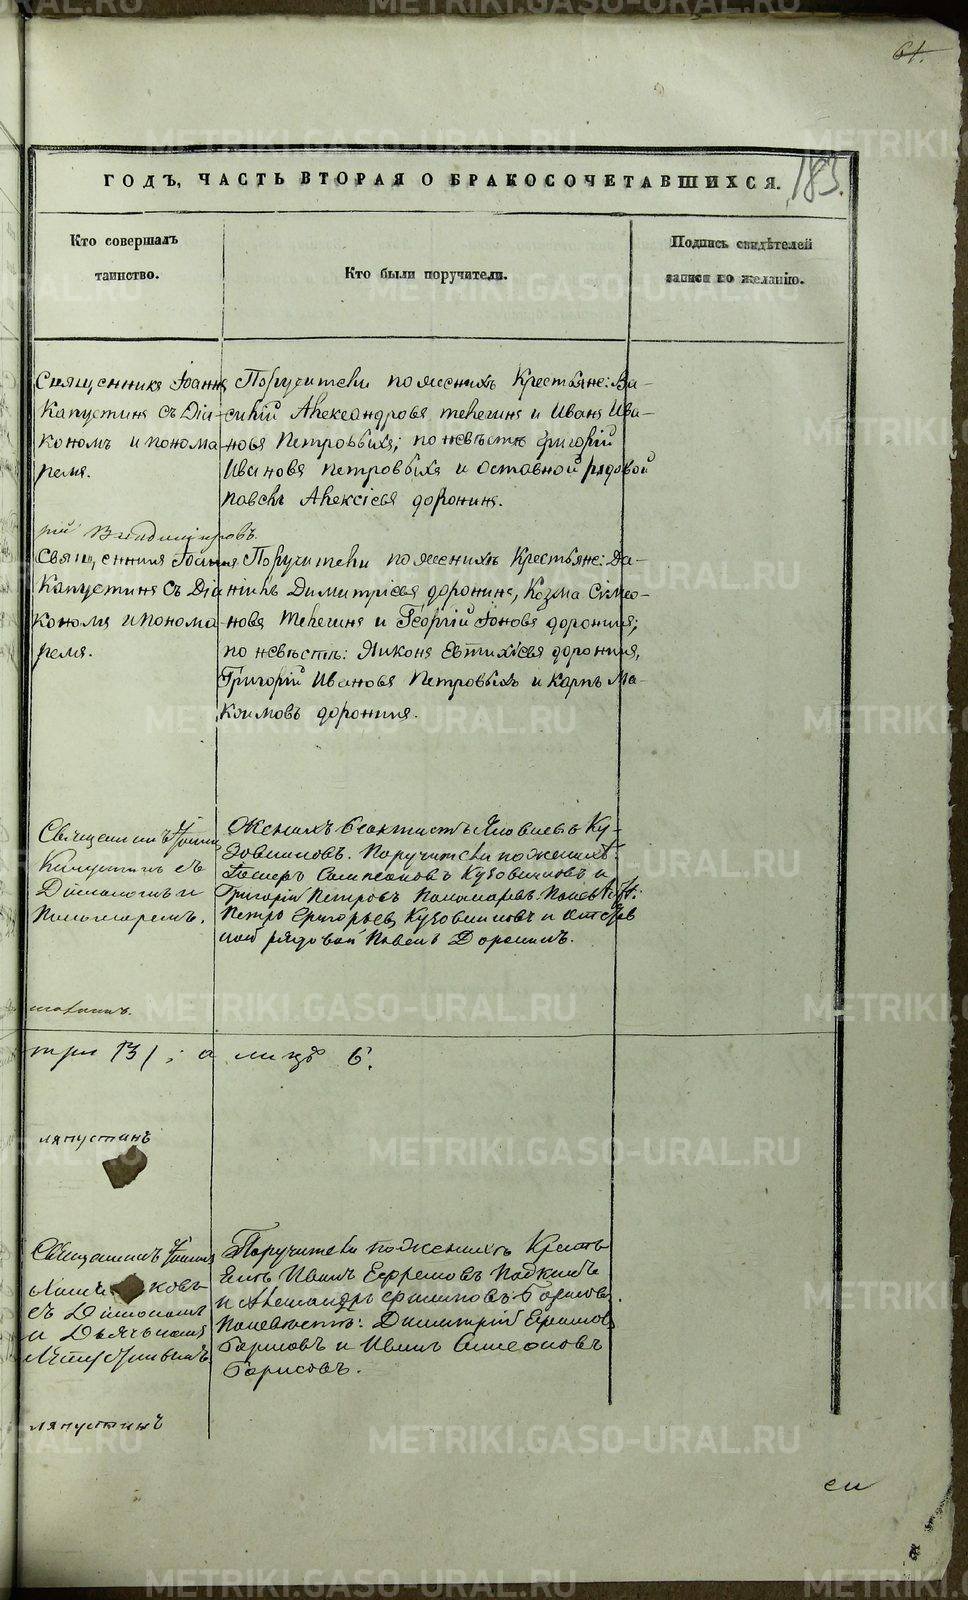 61.
183.
ГОДЪ, ЧАСТЬ ВТОРАЯ О БРАКОСОЧЕТАВШИХСЯ.
Кто совершалъ
таинство.
Кто были поручители.
Подпись свидѣтелей
записи по желанію.
Священникъ Іоаннъ
Капустинъ съ Діа-
кономъ и понома
ремъ.
Поручители по женихѣ Крестьяне: Ва-
силій Александровъ телегинъ и Иванъ Ива-
новъ Петровыхъ; по невѣстѣ Григорій
Ивановъ петровыхъ и оставной рядовой
павелъ Алексіевъ доронинъ.
рій Владиміровъ.
Священникъ Іоаннъ
Капустинъ съ Діа
кономъ и понома
ремъ.
Поручители по женихѣ Крестьяне: Да-
ніилъ Димитріевъ доронинъ, Козма Симео-
новъ телегинъ и Георгій Іоновъ доронинъ;
по невѣстѣ: Никонъ Евтихіевъ доронинъ,
Григорій Ивановъ Петровыхъ и карпъ Ма-
ксимовъ доронинъ.
Священникъ Іоаннъ
Капустинъ съ
Діакономъ и
Пономаремъ.
Женихъ Феоктистъ Яковлевъ Ку-
зовниковъ. Поручители по женихѣ:
Сампсоновъ Кузовниковъ и
Григорій Петровъ Пономаревъ. По невѣстѣ:
Петръ Григорьевъ Кузовниковъ и отстав
ной рядовой Павелъ Доронинъ.
три /3/; а лицъ 6.
ляпустинъ
Священникъ Іоаннъ
ковъ
съ Діакономъ
и Дьячькомъ
Поручители по женихѣ Кресть
Иванъ Ефремовъ
и Александръ Филиповъ Борисовъ.
По невѣстѣ: Димитрій Ефимовъ
Борисовъ и Иванъ Симеоновъ
Борисовъ.
ляпустинъ
METRIKI.GASO-URAL.RU